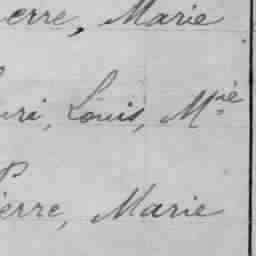 erre, Marie
uri, Louis, Mie
ierre, Marie